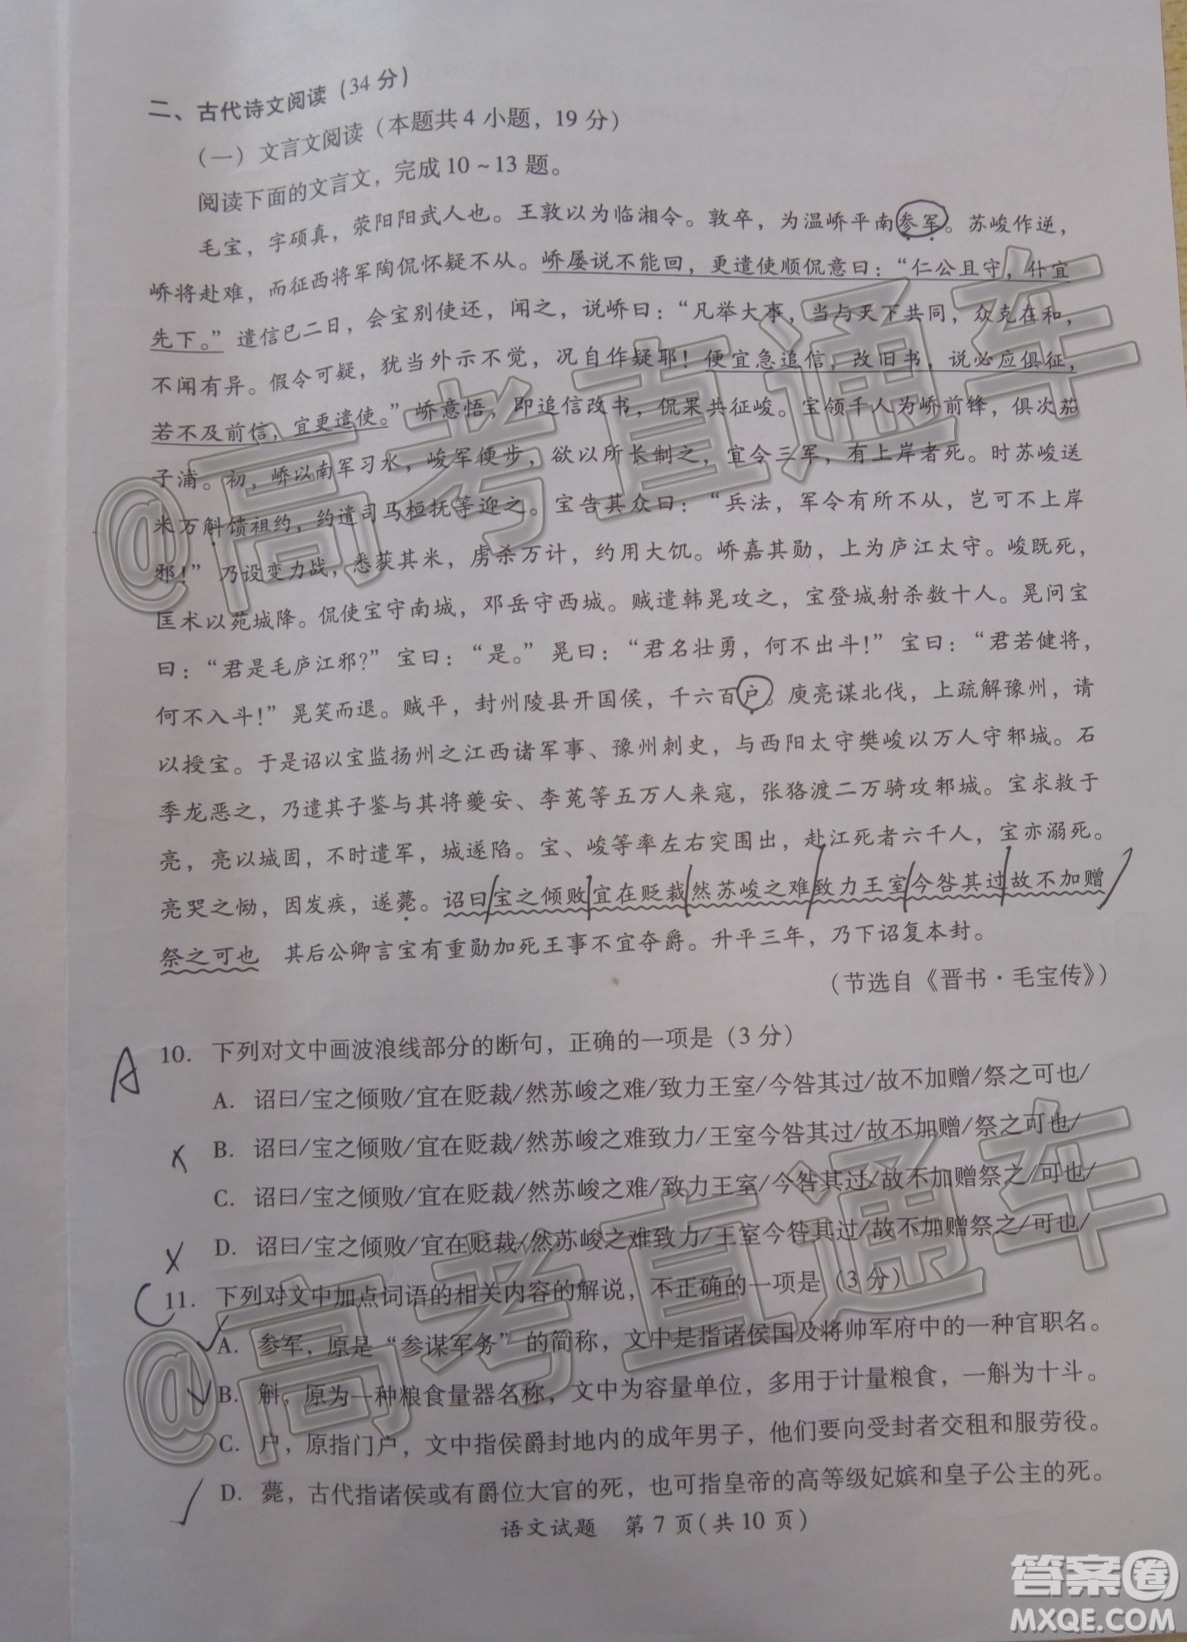 二、古代诗文阅读（34 分）
（一）文言文阅读（本题共 4 小题，19 分）
阅读下面的文言文，完成 10～13 题。
毛宝，字硕真，荥阳阳武人也。王敦以为临湘令。敦卒，为温峤平南参军。苏峻作逆，
峤将赴难，而征西将军陶侃怀疑不从。峤屡说不能回，更遣使顺侃意曰：“仁公且守，仆宜
先下。”遣信已二日，会宝别使还，闻之，说峤曰：“凡举大事，当与天下共同，众克在和，
不闻有异。假令可疑，犹当外示不觉，况自作疑耶！便宜急追信，改旧书，说必应俱征，
若不及前信，宜更遣使。”峤意悟，即追信改书，侃果共征峻。宝领千人为峤前锋，俱次茄
子浦。初，峤以南军习水，峻军便步，欲以所长制之，宜令三军，有上岸者死。时苏峻送
米万斛馈祖约，约遣司马桓抚等迎之。宝告其众曰：“兵法，军令有所不从，岂可不上岸
邪！”乃设变力战，悉获其米，虏杀万计，约用大饥。峤嘉其勋，上为庐江太守。峻既死，
匡术以苑城降。侃使宝守南城，邓岳守西城。贼遣韩晃攻之，宝登城射杀数十人。晃问宝
曰：“君是毛庐江邪？”宝曰：“是。”晃曰：“君名壮勇，何不出斗！”宝曰：“君若健将，
何不入斗！”晃笑而退。贼平，封州陵县开国侯，千六百户。庾亮谋北伐，上疏解豫州，请
以授宝。于是诏以宝监扬州之江西诸军事、豫州刺史，与西阳太守樊峻以万人守邾城。石
季龙恶之，乃遣其子鉴与其将夔安、李菟等五万人来寇，张狢渡二万骑攻邾城。宝求救于
亮，亮以城固，不时遣军，城遂陷。宝、峻等率左右突围出，赴江死者六千人，宝亦溺死。
亮哭之恸，因发疾，遂薨。诏曰宝之倾败宜在贬裁然苏峻之难致力王室今咎其过故不加赠
祭之可也 其后公卿言宝有重勋加死王事不宜夺爵。升平三年，乃下诏复本封。
（节选自《晋书·毛宝传》）
A
10．下列对文中画波浪线部分的断句，正确的一项是（3 分）
A．诏曰/宝之倾败/宜在贬裁/然苏峻之难/致力王室/今咎其过/故不加赠/祭之可也/
B．诏曰/宝之倾败/宜在贬裁/然苏峻之难致力/王室今咎其过/故不加赠/祭之可也/
C．诏曰/宝之倾败/宜在贬裁/然苏峻之难/致力王室/今咎其过/故不加赠祭之/可也/
D．诏曰/宝之倾败/宜在贬裁/然苏峻之难致力/王室今咎其过/故不加赠祭之/可也/
C
11．下列对文中加点词语的相关内容的解说，不正确的一项是（3 分）
A．参军，原是“参谋军务”的简称，文中是指诸侯国及将帅军府中的一种官职名。
B．斛，原为一种粮食量器名称，文中为容量单位，多用于计量粮食，一斛为十斗。
C．户，原指门户，文中指侯爵封地内的成年男子，他们要向受封者交租和服劳役。
D．薨，古代指诸侯或有爵位大官的死，也可指皇帝的高等级妃嫔和皇子公主的死。
语文试题 第 7 页（共 10 页）
@高考直通车
@高考直通车
答案卷
MXQE.COM